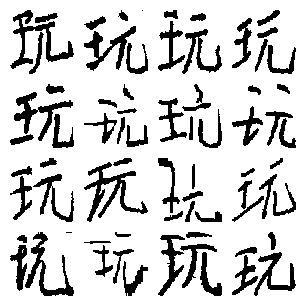 玩玩玩玩
玩玩玩玩
玩玩玩玩
玩玩玩玩